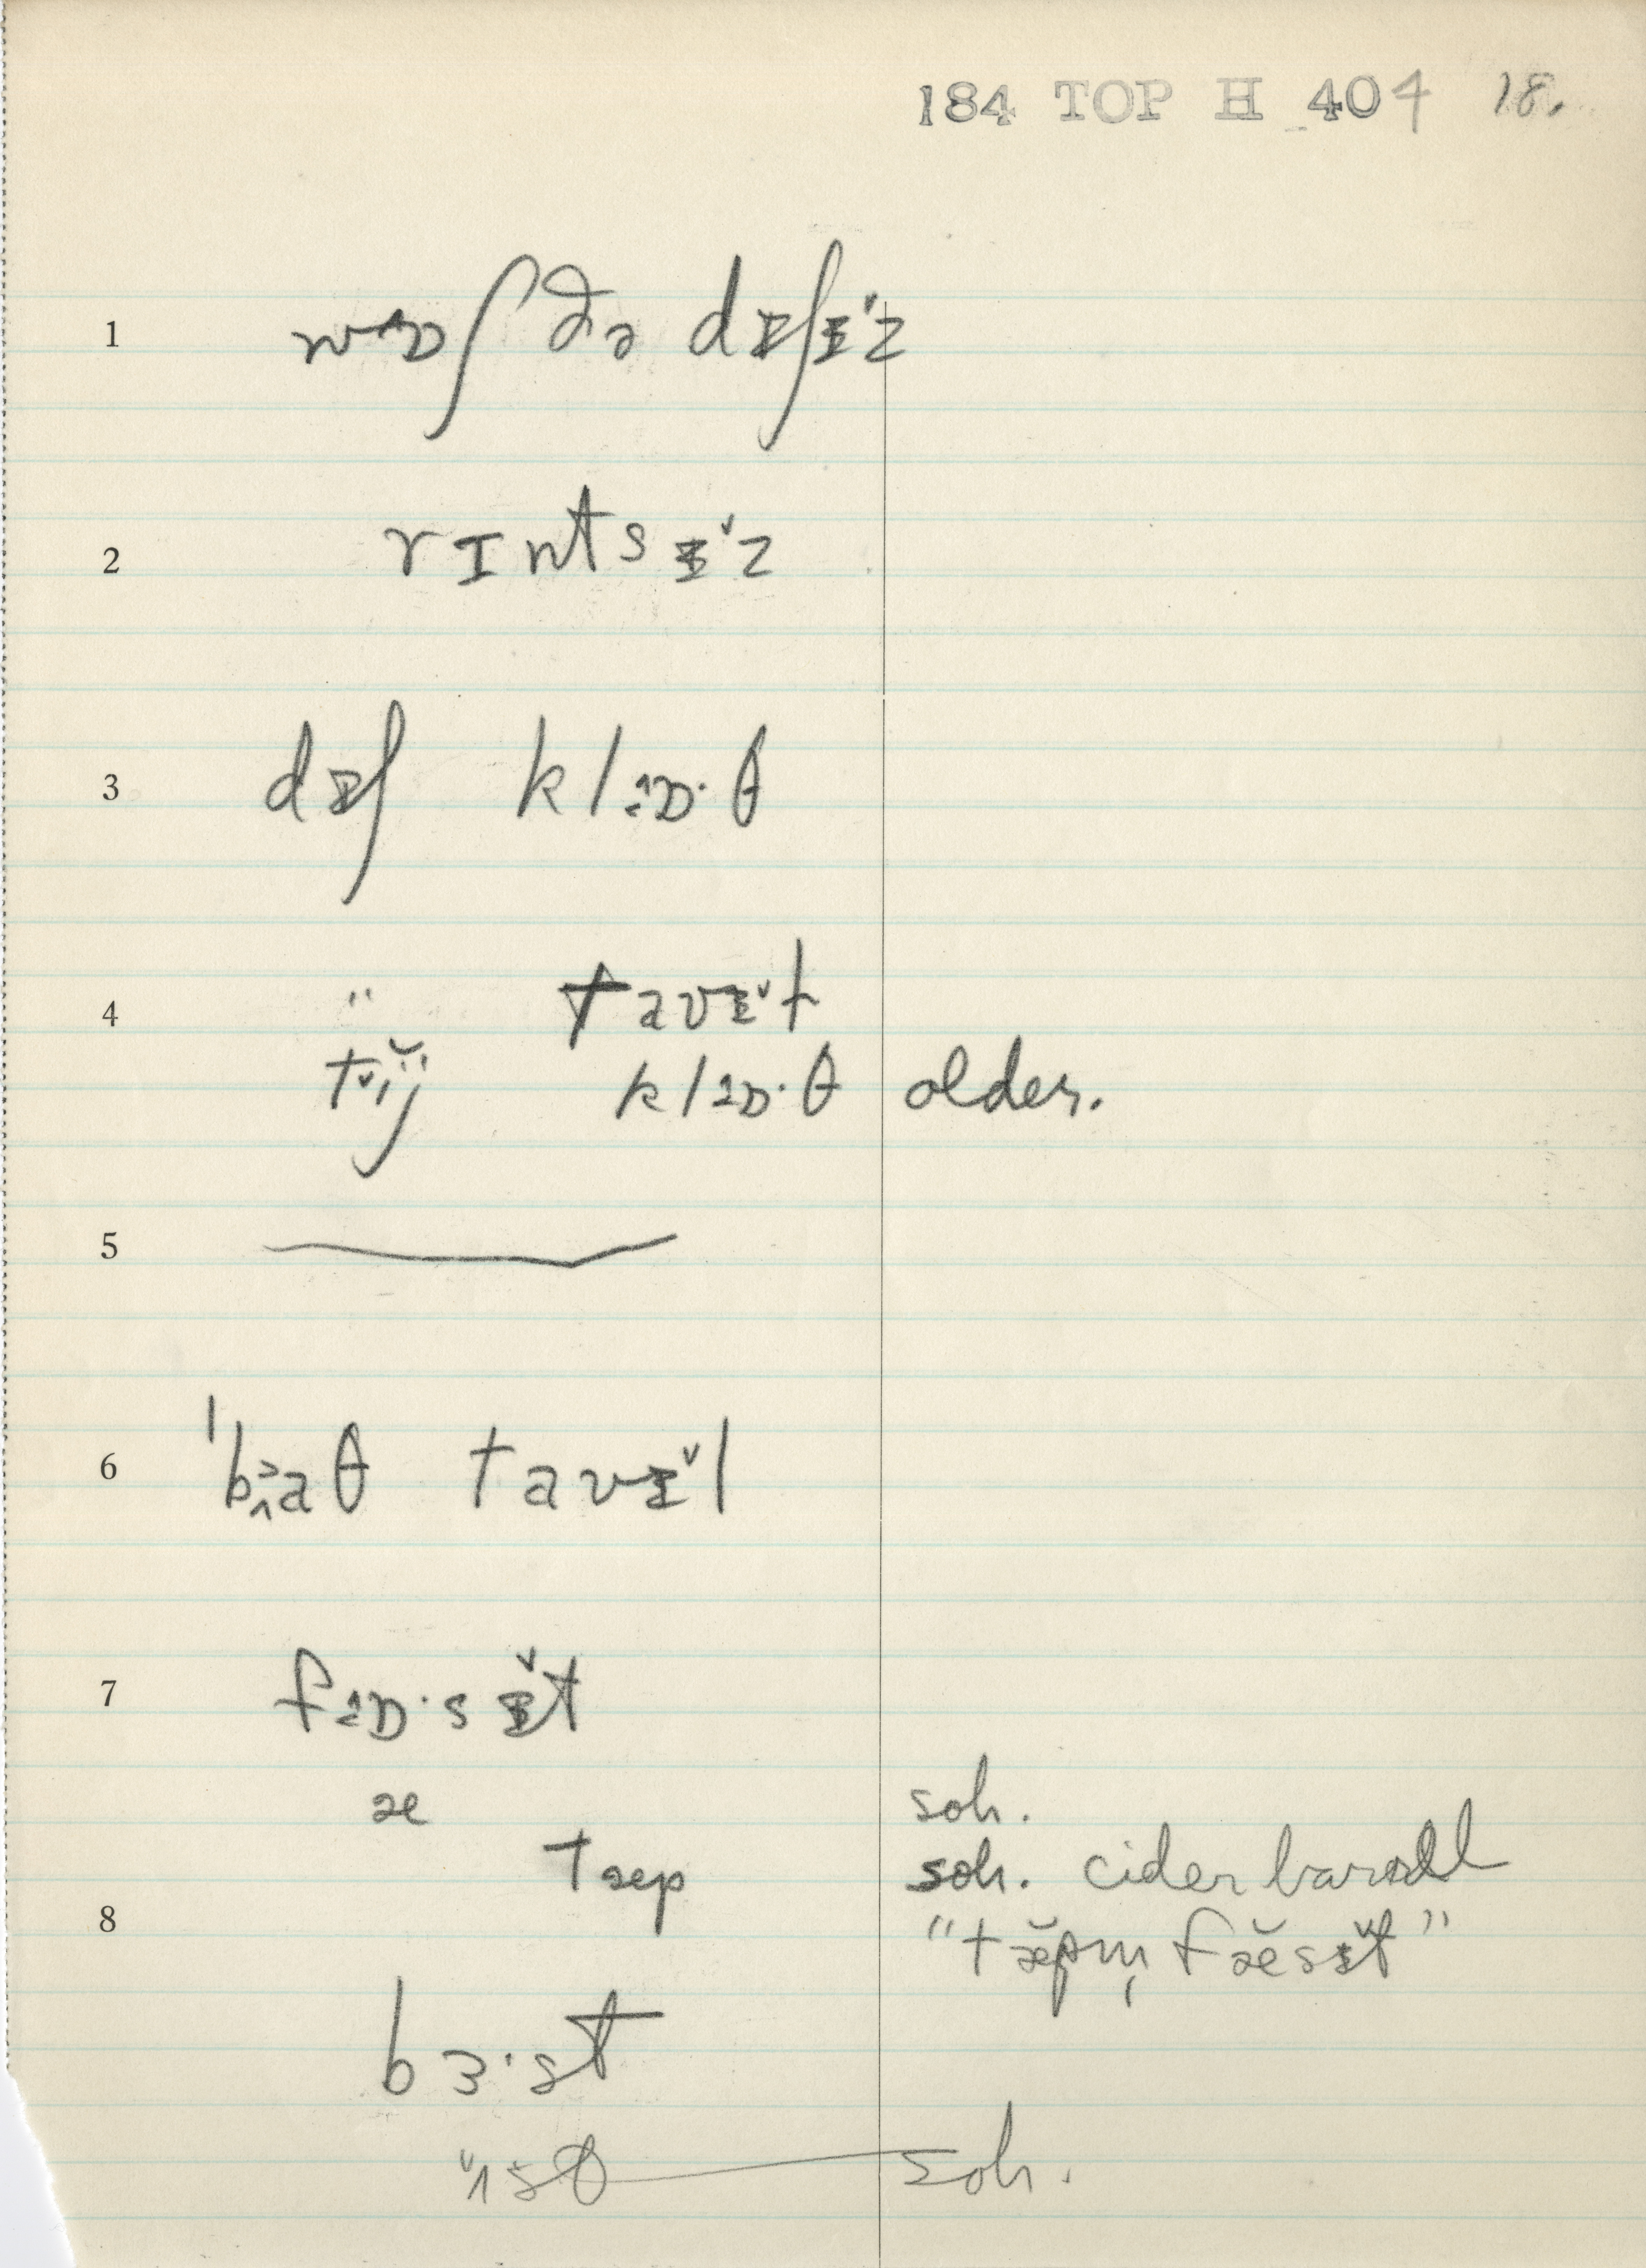 184 TOP H 404 18.
1 wɒʃ ðə dɪʃɪ˅z
2 rɪntsɪ˅z
3 dɪʃ klɒ·θ
4 " tavɪ˅t
klɒ·θ older.
5
6 ˈbaθ tavɪ˅l
7 fɒ·sɪ˅t
æ soh.
tæp soh. cider barrell
8 "tæ̆pm̩ fæ̆sɪ˅t"
bɜ·st
soh.